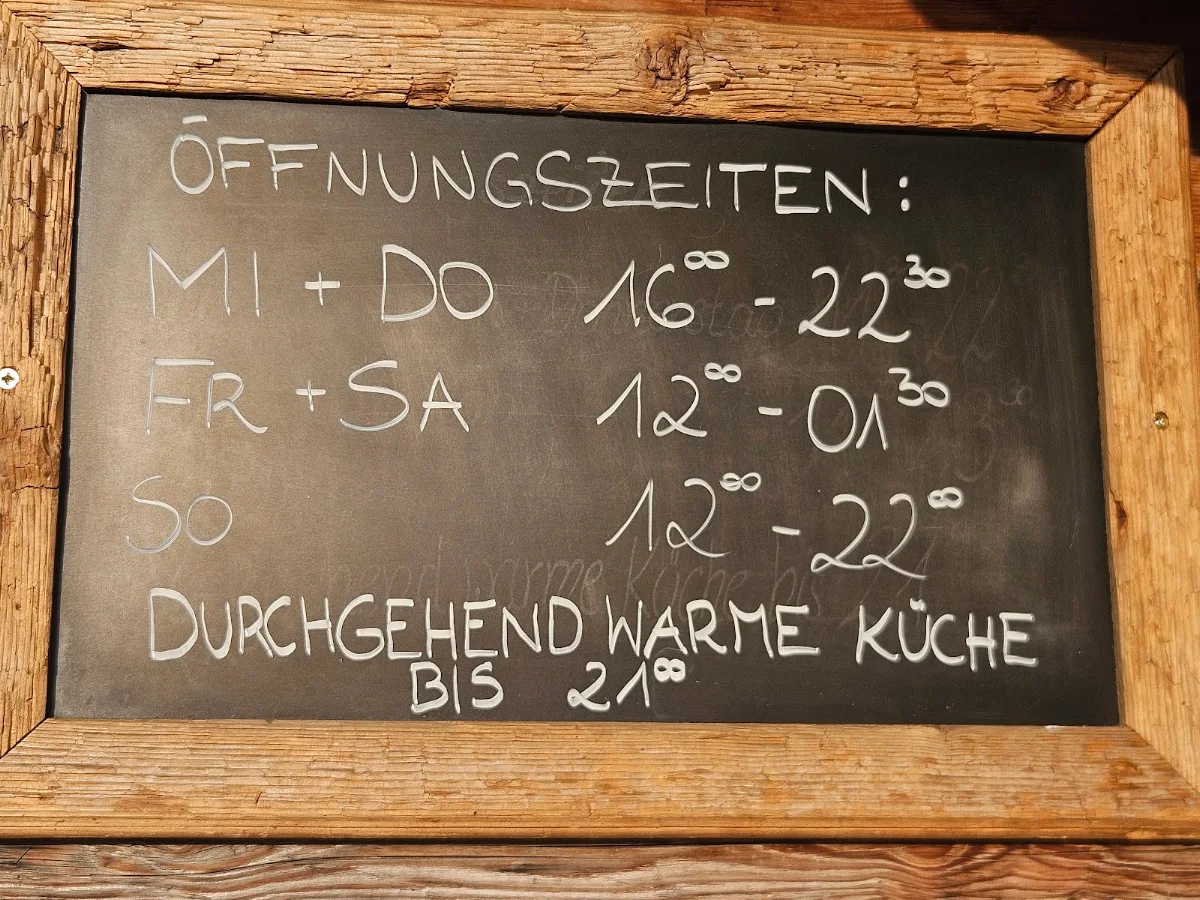 ÖFFNUNGSZEITEN:
MI + DO 16⁰⁰ - 22³⁰
FR + SA 12⁰⁰ - 01³⁰
SO 12⁰⁰ - 22⁰⁰
DURCHGEHEND WARME KÜCHE
BIS 21⁰⁰